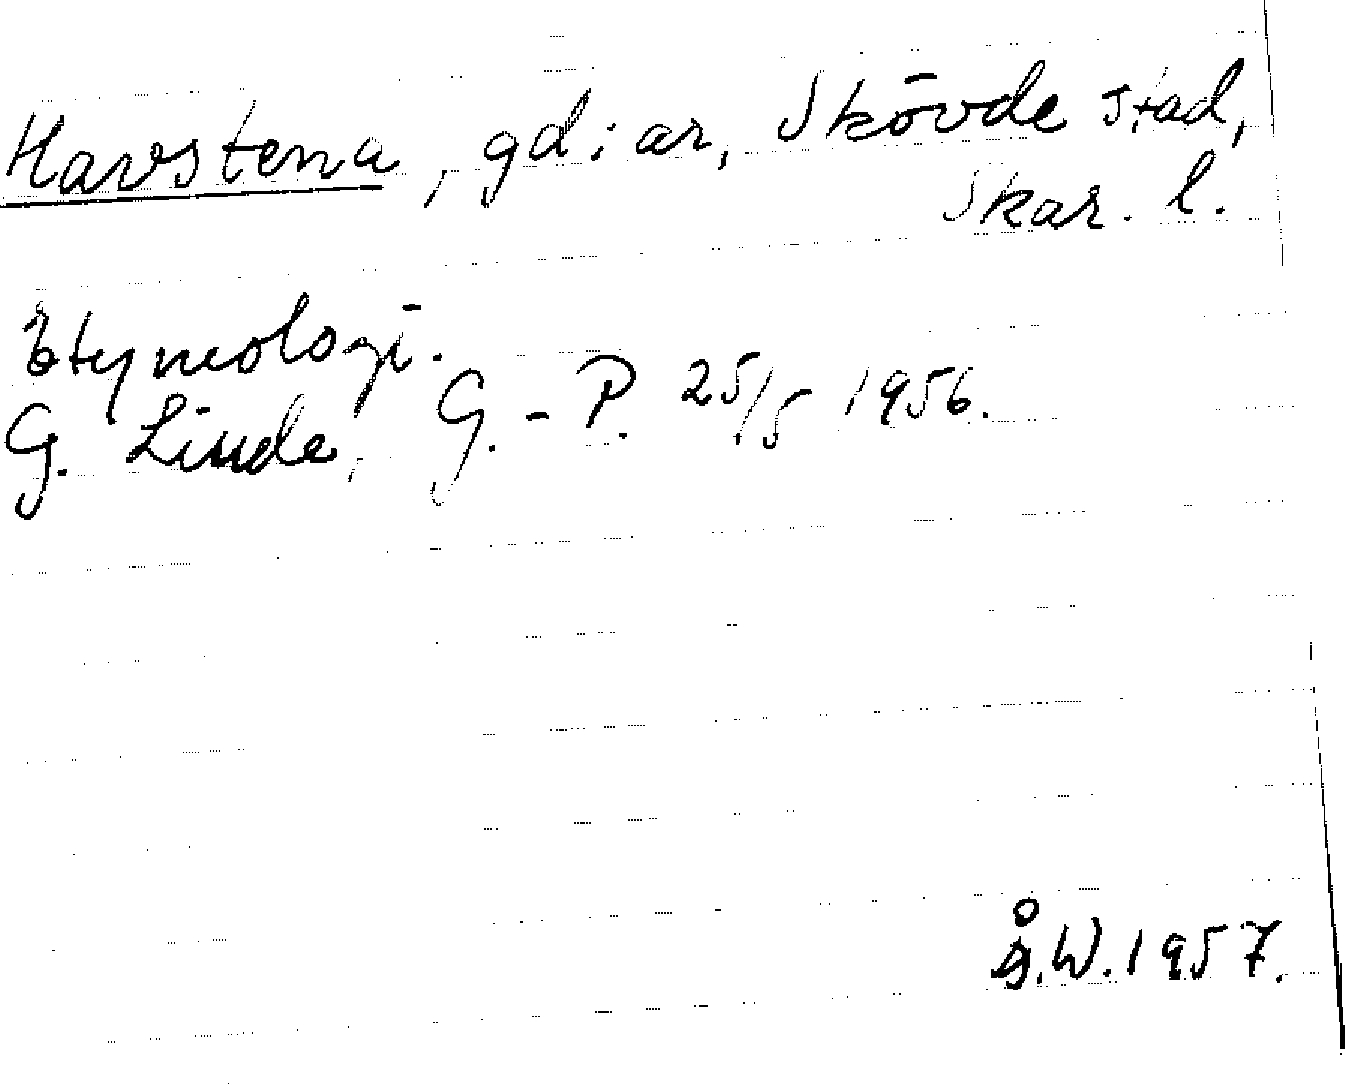 Havstena, gd:ar, Skövde stad,
Skar. l.
Etymologi.
G. Linde, G.-P. 25/5 1956.
Å.W. 1957.